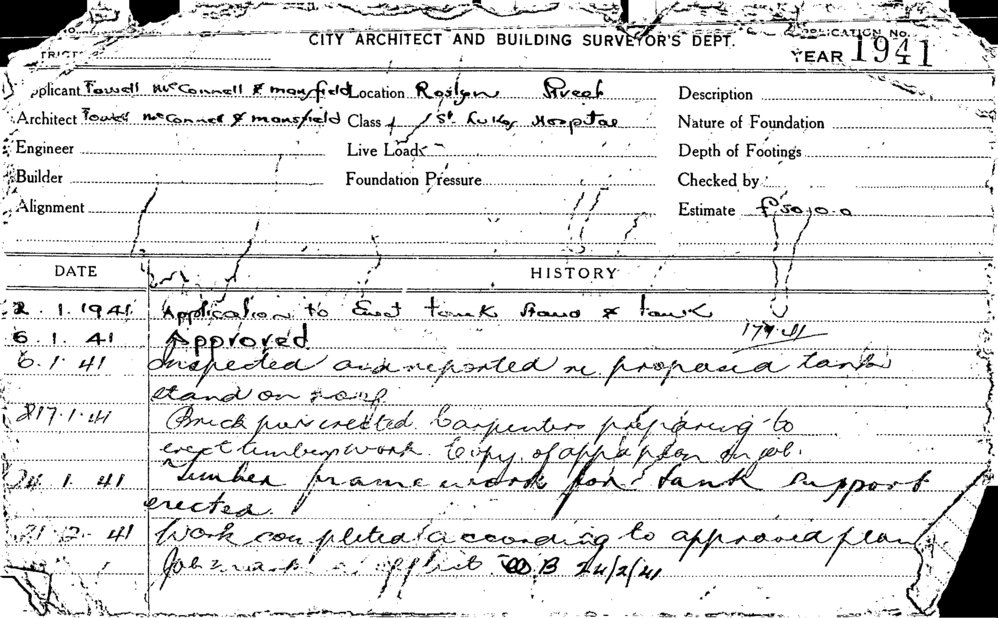 APPLICATION No.
CITY ARCHITECT AND BUILDING SURVEYOR'S DEPT.
YEAR 1941
Applicant Fowell McConnell & mansfield Location Roslyn Street Description
Architect Fowell McConnel & mansfield Class St Lukes Hospital Nature of Foundation
Engineer Live Load Depth of Footings
Builder Foundation Pressure Checked by
Alignment Estimate £50.0.0
DATE HISTORY
2.1.1941 Application to Erect tank stand & tank
6.1.41 Approved
6.1.41 Inspected and reported re proposed tank
stand on roof
17.1.41 Brick piers erected. Carpenters preparing to
erect timber work. Copy of appd plan on job.
24.1.41 Timber frame work for tank support
erected.
21.2.41 Work completed according to approved plan
24/2/41